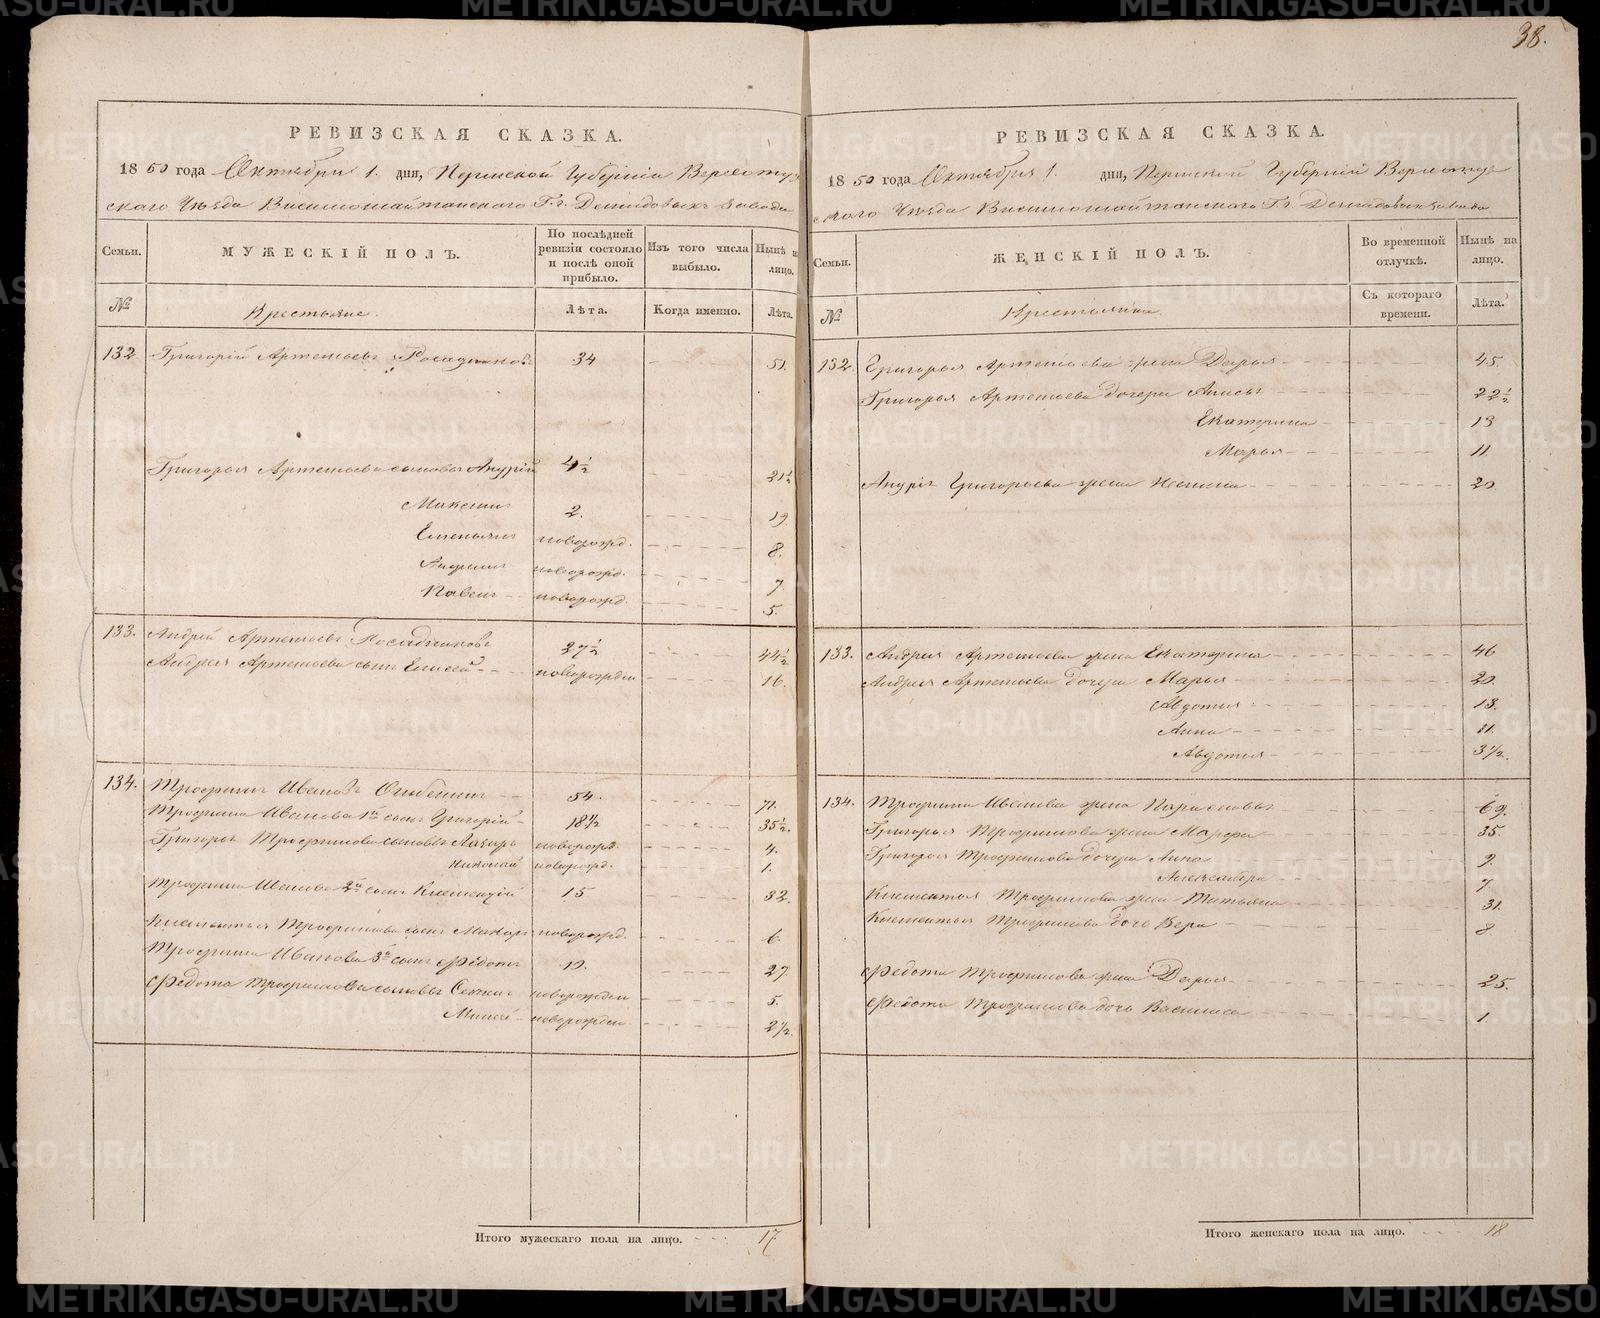 38.
РЕВИЗСКАЯ СКАЗКА.
1850 года Октября 1 дня, Пермской Губернии Верхотур
скаго Уѣзда Висимошайтанскаго Гг. Демидовыхъ завода
Семьи.
МУЖЕСКІЙ ПОЛЪ.
По послѣдней ревизіи состояло и послѣ оной прибыло.
Изъ того числа выбыло.
Нынѣ на лицо.
№
Крестьяне.
Лѣта.
Когда именно.
Лѣта.
132 Григорій Артемьевъ Посадниковъ 34 51.
Григорья Артемьева сыновья Андрій 4½ 21½
Максимъ 2. 19
Емельянъ новорожд. 8.
новорожд. 7
Павелъ новорожд. 5.
133. Андрей Артемьевъ Посадниковъ 27½ 44½
Андрея Артемьева сынъ Елисей новорожден 16.
134. Трофимъ Ивановъ 54. 71.
Трофима Иванова 1й сынъ Григорій 18½ 35½.
Григорья Трофимова сыновья Лазарь новорожд. 4.
Николай новорожд. 1.
Трофима Иванова 2й сынъ Клементій 15 32.
Клементья Трофимова сынъ Макаръ новорожд. 6
Трофима Иванова 3й сынъ Федотъ 10. 27
Федота Трофимова сыновья новорожден 5.
новорожден 2½.
Итого мужескаго пола на лицо. 17
РЕВИЗСКАЯ СКАЗКА.
1850 года Октября 1 дня, Пермской Губерніи Верхотур
скаго Уѣзда Висимошайтанскаго Гг. Демидовыхъ завода
Семьи.
ЖЕНСКІЙ ПОЛЪ.
Во временной отлучкѣ.
Нынѣ на лицо.
№
Крестьянки
Съ котораго времени.
Лѣта.
132. Григорья Артемьева жена Дарья 45.
Григорья Артемьева дочери 22½
Екатерина 13
Марья 11
Андрія Григорьева жена Ксенія 20
133. Андрея Артемьева жена Екатерина 46
Андрея Артемьева дочери Марья 20.
Авдотья 13.
Анна 11.
Авдотья 3½.
134. Трофима Иванова жена Парасковья 69.
Григорья Трофимова жена Марфа 35.
Григорья Трофимова дочери Анна 9.
Александра 7
Клементья Трофимова жена Татьяна 31.
Клементья Трофимова дочь Вера 8.
Федота Трофимова жена Дарья 25.
Федота Трофимова дочь Василиса 1
Итого женскаго пола на лицо. 18
METRIKI.GASO-URAL.RU